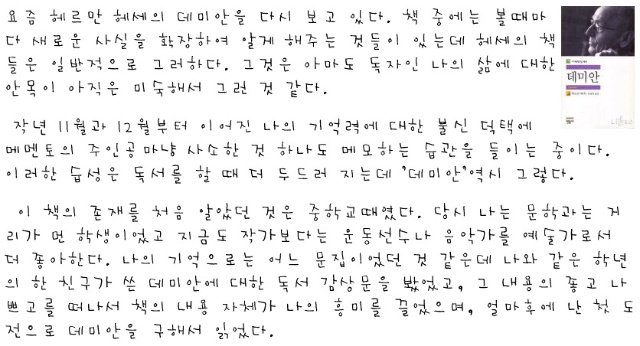 요즘 헤르만 헤세의 데미안을 다시 보고 있다. 책 중에는 볼때마
다 새로운 사실을 확장하여 알게 해주는 것들이 있는데 헤세의 책
들은 일반적으로 그러하다. 그것은 아마도 독자인 나의 삶에 대한
안목이 아직은 미숙해서 그런 것 같다.
데미안
작년 11월과 12월부터 이어진 나의 기억력에 대한 불신 덕택에
메멘토의 주인공마냥 사소한 것 하나도 메모하는 습관을 들이는 중이다.
이러한 습성은 독서를 할 때 더 두드러 지는데 '데미안'역시 그렇다.
이 책의 존재를 처음 알았던 것은 중학교때였다. 당시 나는 문학과는 거
리가 먼 학생이었고 지금도 작가보다는 운동선수나 음악가를 예술가로서
더 좋아한다. 나의 기억으로는 어느 문집이었던 것 같은데 나와 같은 학년
의 한 친구가 쓴 데미안에 대한 독서 감상문을 봤었고, 그 내용의 좋고 나
쁘고를 떠나서 책의 내용 자체가 나의 흥미를 끌었으며, 얼마후에 난 첫 도
전으로 데미안을 구해서 읽었다.